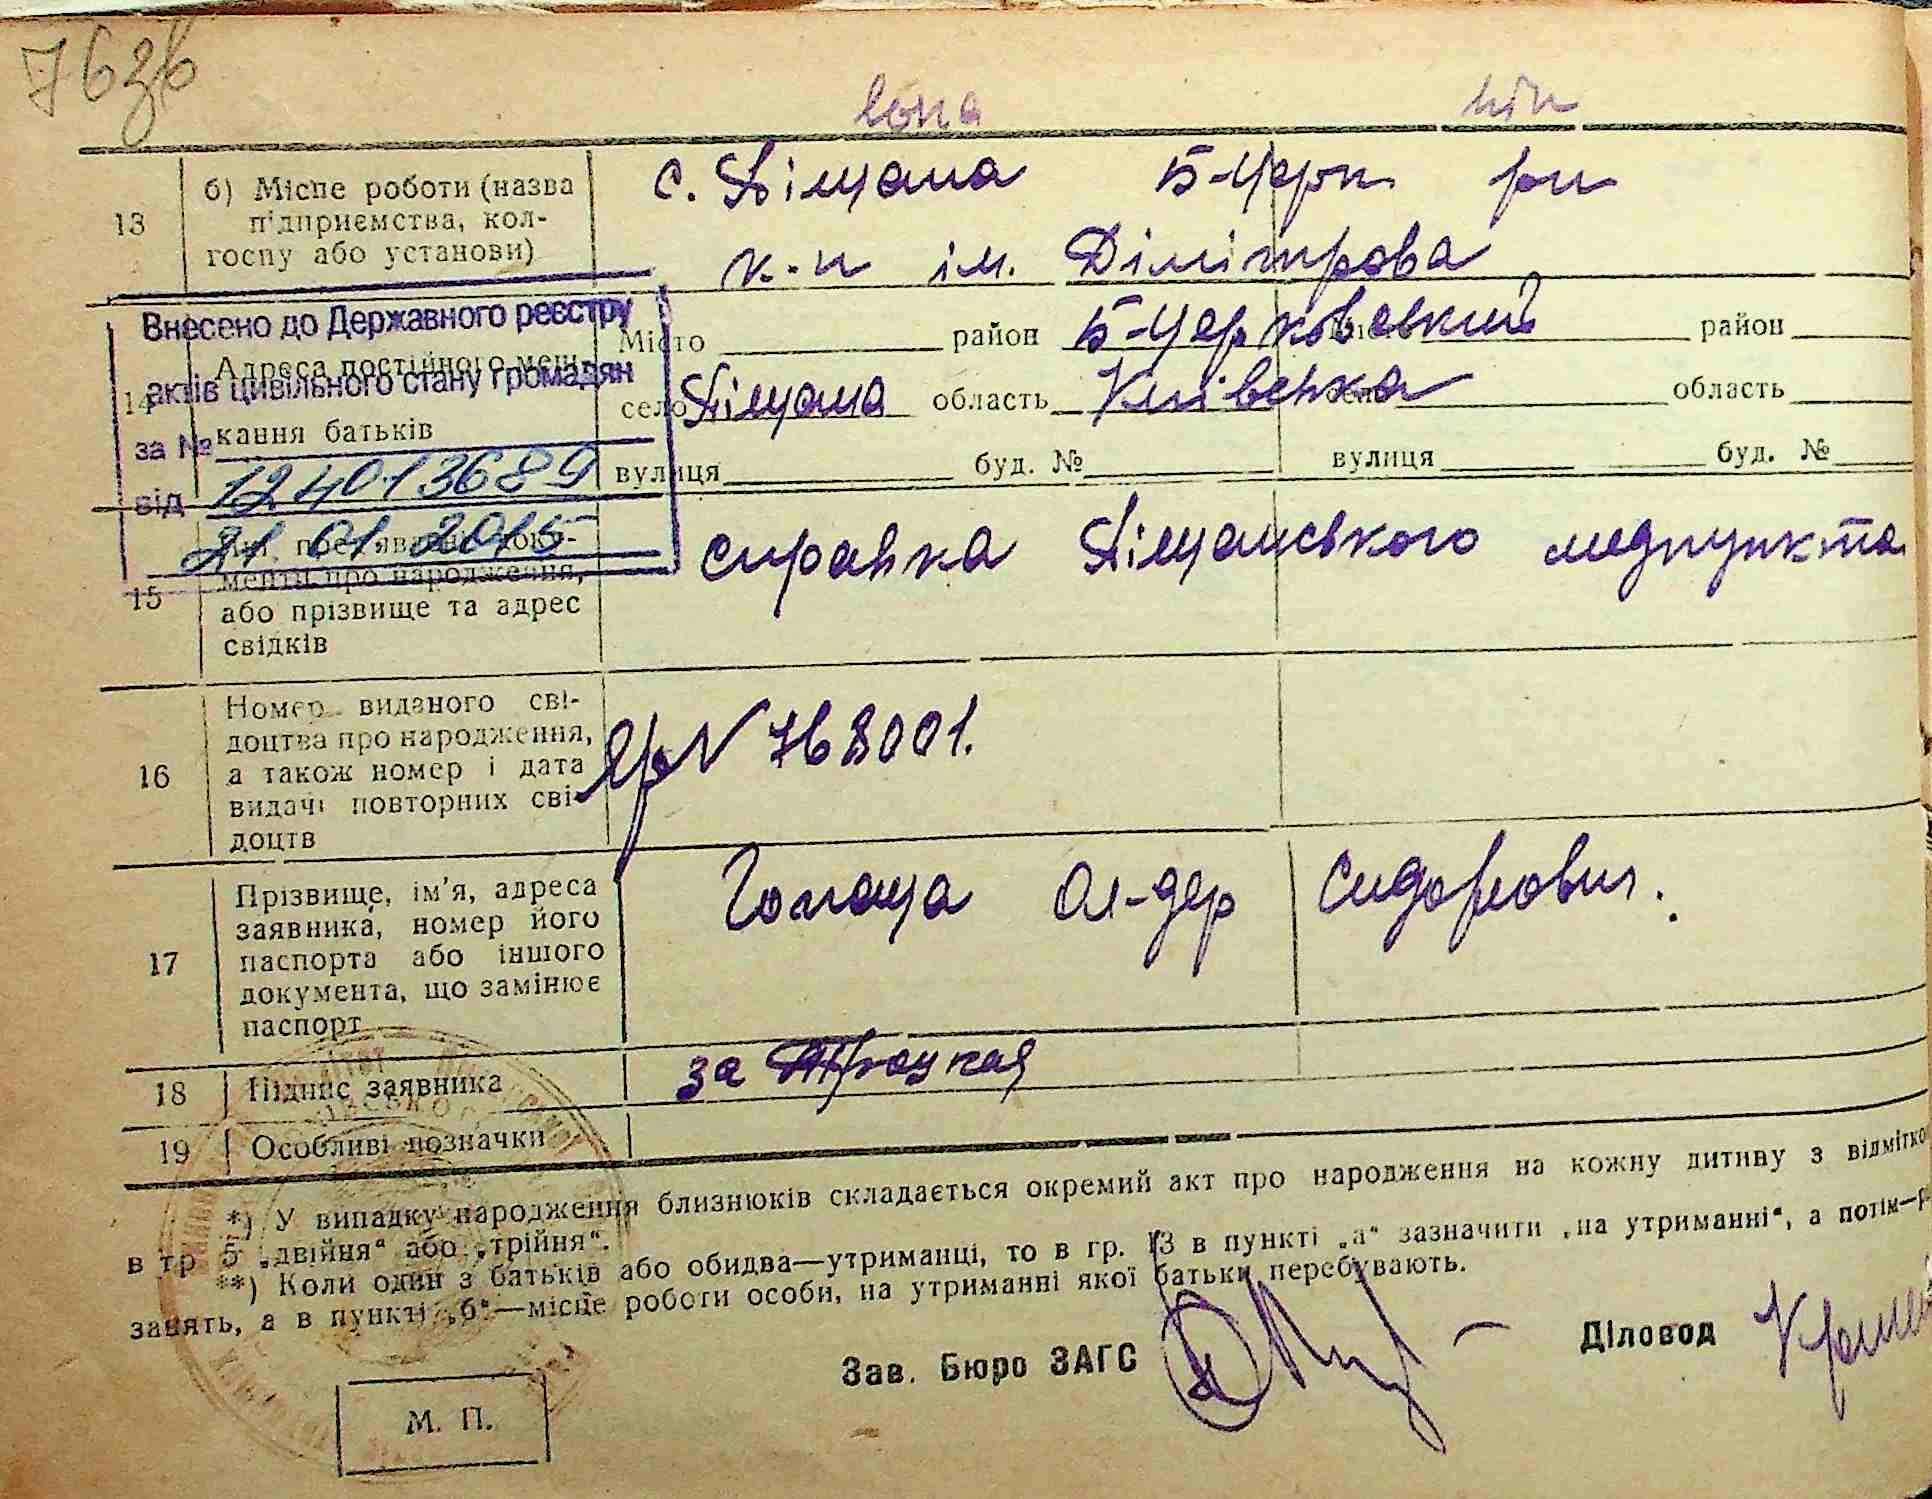 76зв
вона він
13 б) Місце роботи (назва підприємства, колгоспу або установи)
с. Піщана Б-Церк рн
к-п ім. Дімітрова
Внесено до Державного реєстру
актів цивільного стану громадян
за № 12401368
від 21.01.2015
14 Адреса постійного меш-
кання батьків
Місто район Б-Церковський Місто район
село Піщана область Київська село область
вулиця буд. № вулиця буд. №
15 Які пред'явлені доку-
менти про народження,
або прізвище та адрес
свідків
справка Піщанського медпункта
16 Номер виданого сві-
доцтва про народження,
а також номер і дата
видачі повторних сві-
доцтв
№ 768001.
17 Прізвище, ім'я, адреса
заявника, номер його
паспорта або іншого
документа, що замінює
паспорт
Ол-др Сидорович.
18 Підпис заявника
за
19 Особливі позначки
*) У випадку народження близнюків складається окремий акт про народження на кожну дитину з відмітко
в гр 5 „двійня“ або „трійня“.
**) Коли один з батьків або обидва—утриманці, то в гр. 13 в пункті „а“ зазначити „на утриманні“, а потім—р
занять, а в пункті „б“—місце роботи особи, на утриманні якої батьки перебувають.
Зав. Бюро ЗАГС Діловод
М. П.